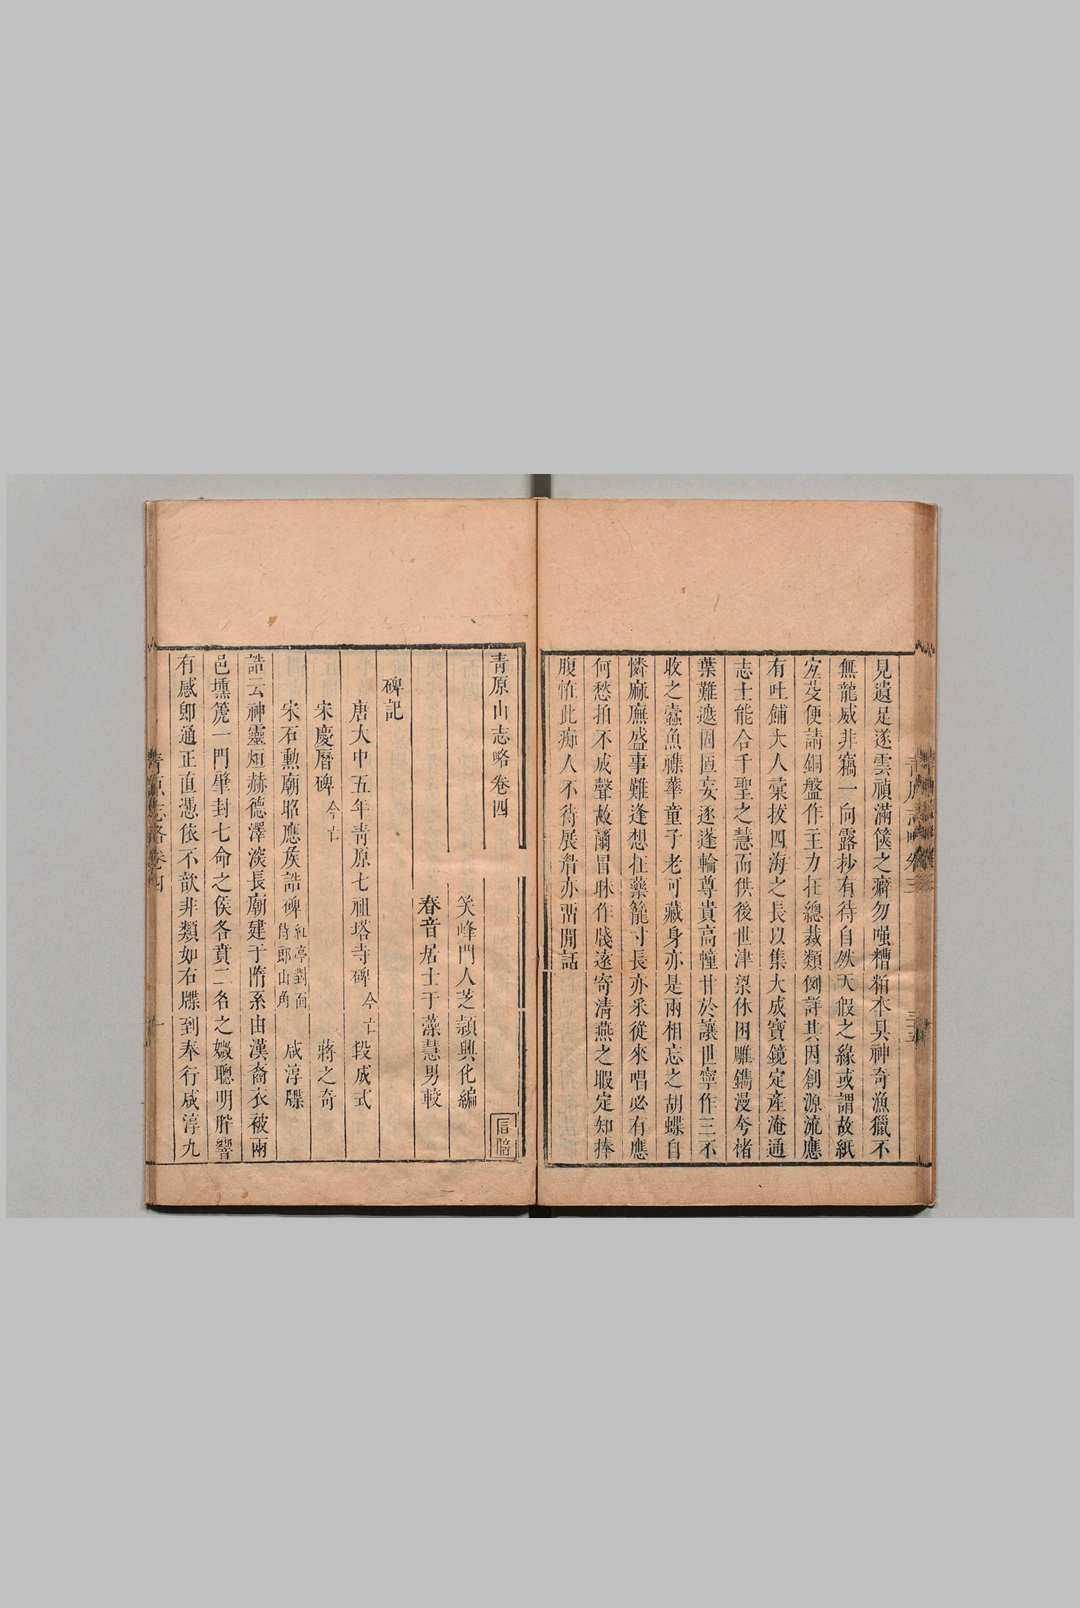 見遺足遂雲頑滿篋之癖勿嗤糟粕本具神奇漁獵不
無龍威非竊一向露抄有待自然天假之緣或謂故紙
便請銅盤作主力在總裁類例詳其因創源流應
有吐餔大人彙拔四海之長以集大成寶鏡定產淹通
志士能合千聖之慧而供後世津梁休困雕鐫漫夸楮
葉難遮固匣妄逐蓬輪尊貴高幢甘於讓世寧作三不
收之蠹魚襍華童子老可藏身亦是兩相忘之胡蝶自
憐廡盛事難逢想在藥籠寸長亦采從來唱必有應
何愁拍不成聲敢蘭冒昧作牋遠寄清燕之暇定知捧
腹怪此痴人不待展眷亦當閒話
青原志略卷三
三五
青原山志略卷四
笑峰門人芝頴興化編
春音居士于藻慧男較
碑記
唐大中五年青原七祖塔寺碑 今亡 段成式
宋慶曆碑 今亡 蔣之奇
宋石勲廟昭應侯誥碑 紅亭對面侍郎山角 咸淳牒
誥云神靈烜赫德澤淡長廟建于隋系由漢裔衣被兩
邑壎箎一門肇封七命之侯各賁二名之媺聰明肸蠁
有感卽通正直憑依不歆非類如右牒到奉行咸淳九
青原志略卷四
一